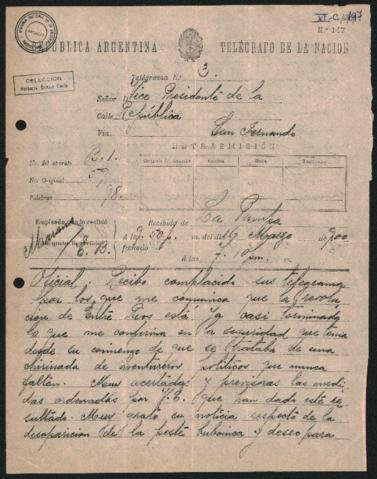 XI-C, 197
REPÚBLICA ARGENTINA TELÉGRAFO DE LA NACION
Nº 147
COLECCION
Telégrama N. 3
Señor Vice Presidente de la
Calle República
Via San Fernando
RETRASMISIÓN
No. del aparato B. 1.
No. Original
Palabras 98
Empleado que lo recibió
Recibido de La Punta
á las 9.50 p. m. del 19 Marzo de 900
á las 7.10 pm.
Oficial. Recibo complacido sus telegramas
por los que me comunica que la revolu
cion de Entre Rios está ya casi terminada
lo que me confirma en la seguridad que tenia
desde su comienzo de que se trataba de una
chirinada de aventureros politicos que nunca
faltan. Muy acertadas y previsoras las medi
das ordenadas por V.E. que han dado este re
sultado. Muy grata su noticia respecto de la
desaparicion de la peste bubonica y deseo para